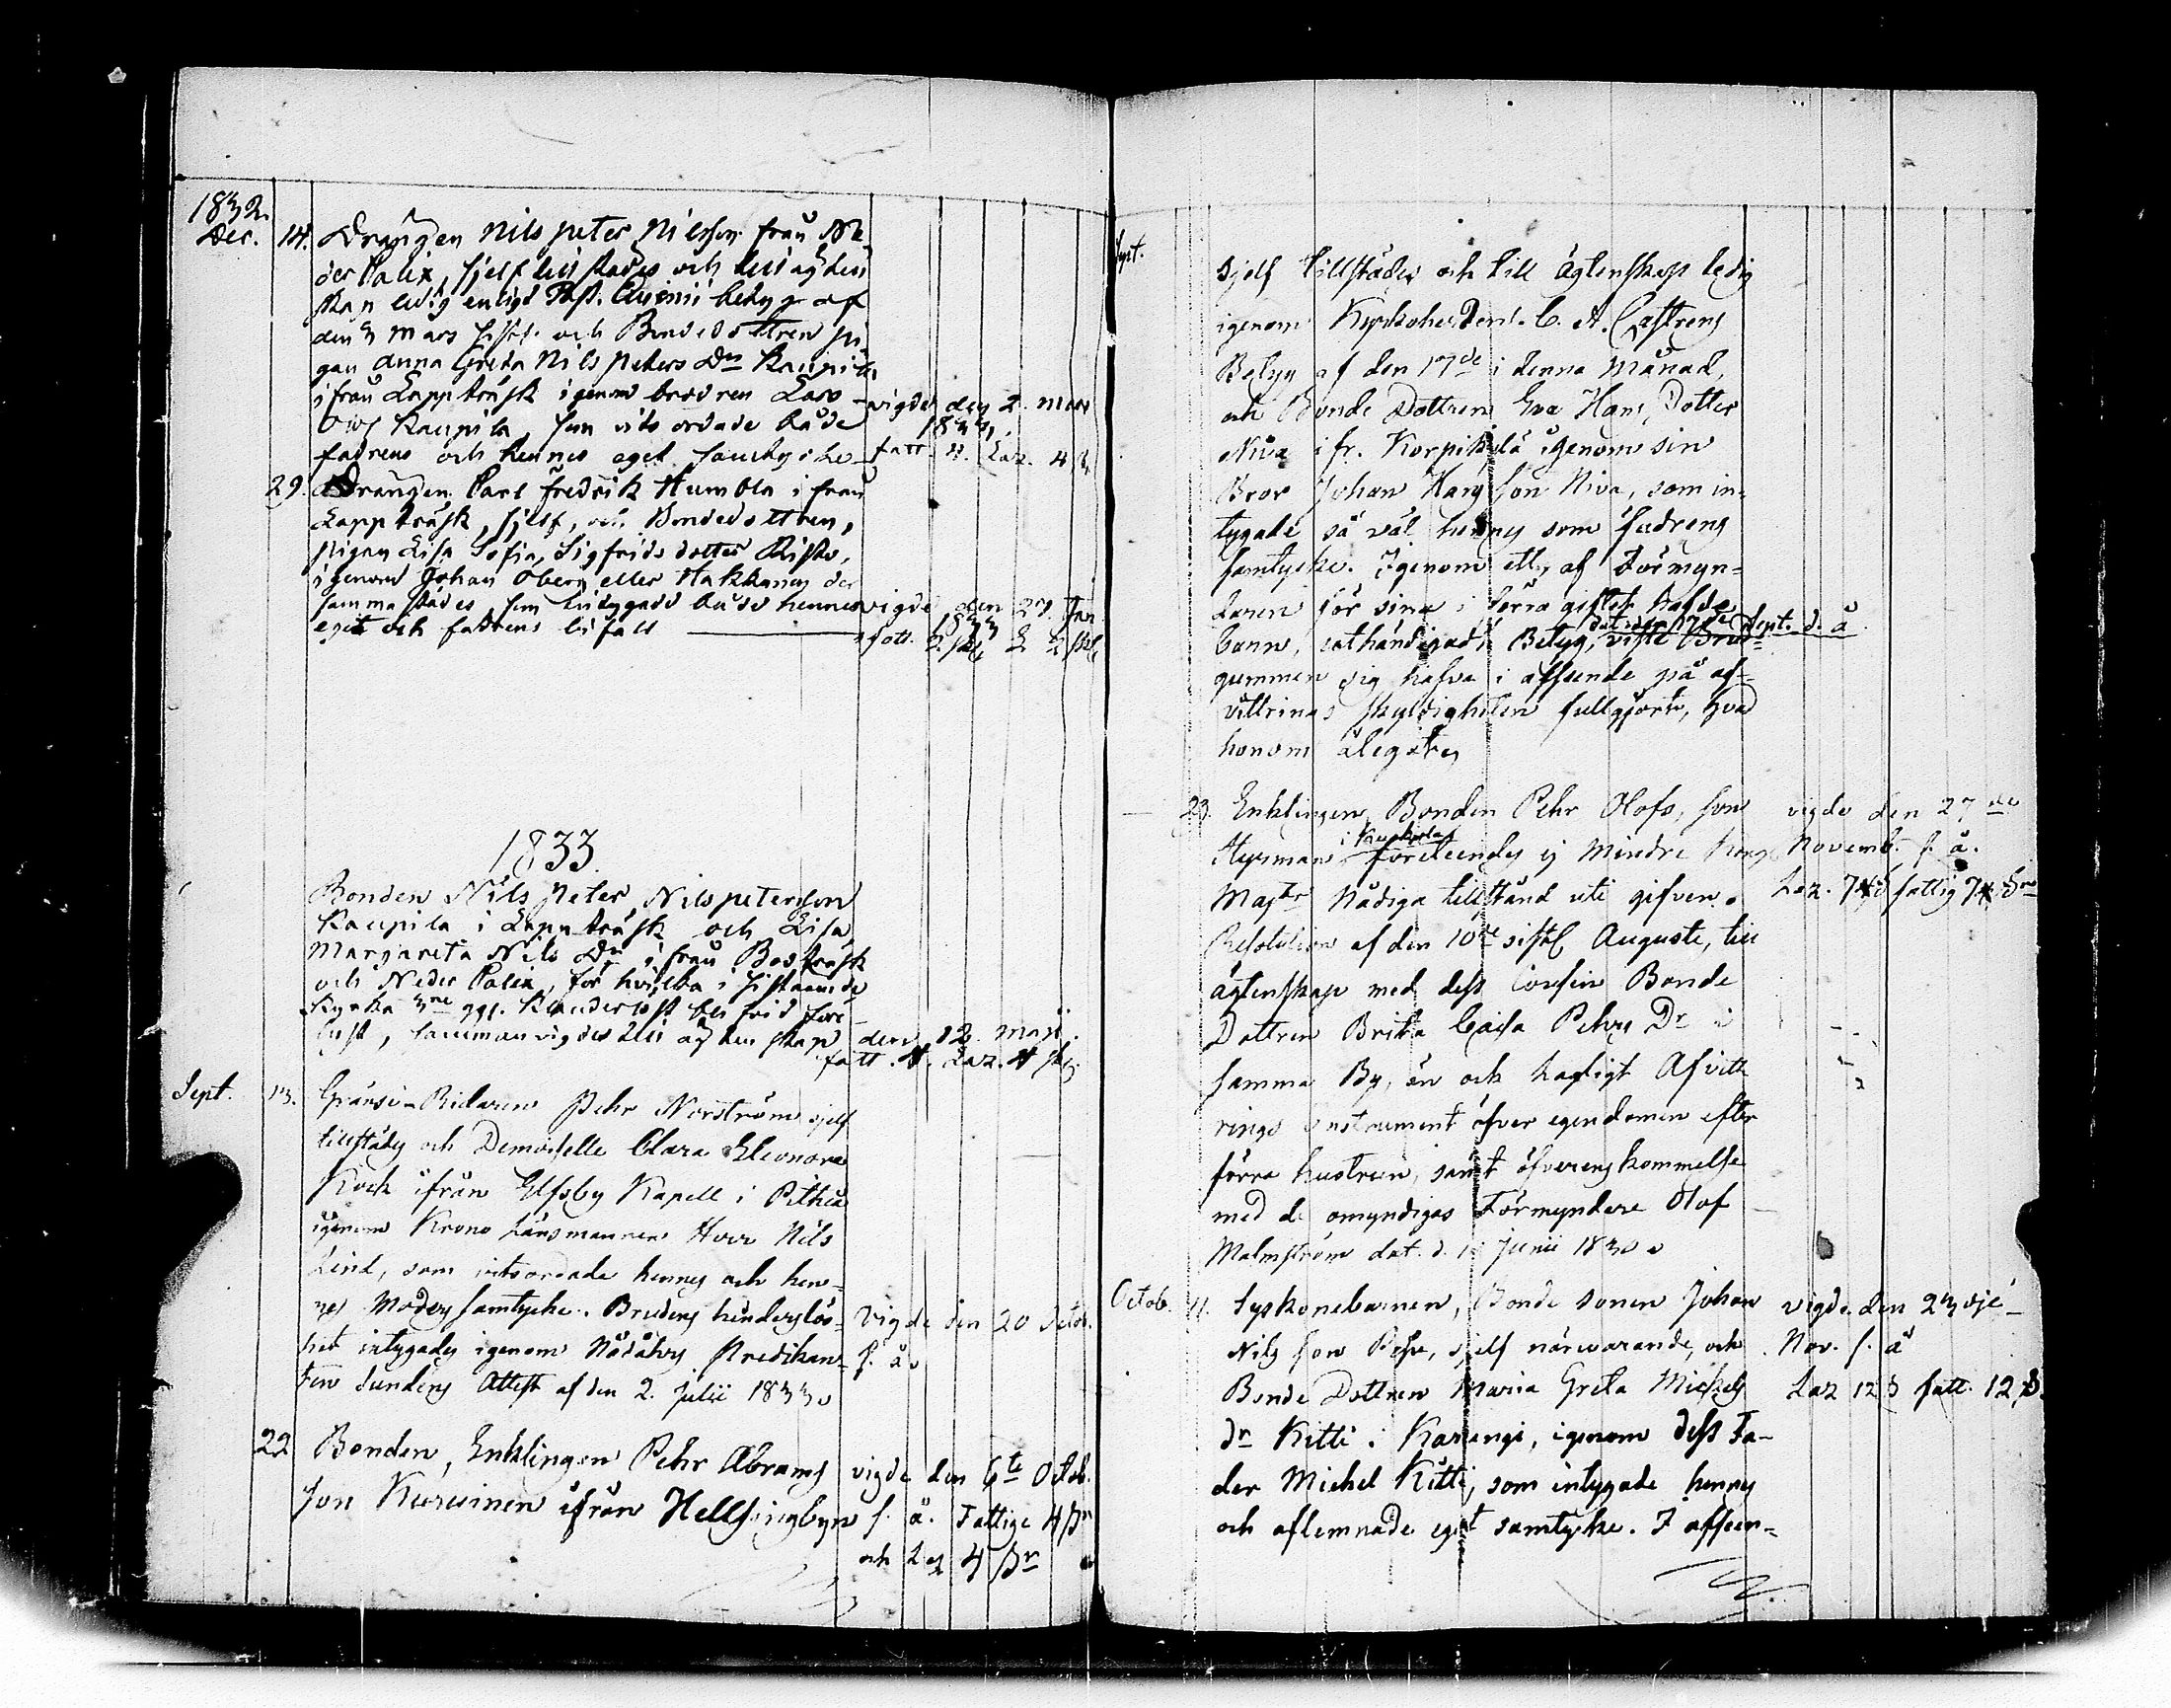 1832.
Dec. 14. Drängen Nils Peter Nilsson från Ne-
der Calix, sjelf tillstädes och till ägten-
skap ledig enligt Past. betyg af
den 3 Mars sistl. och Bondedottren pi-
gan Anna Greta Nils Peters Dr Kaupila
ifrån Lappträsk igenom brodren Lars
Kaupila, som vitsordade både
fadrens och hennes eget samtycke
vigde den 2 Mars
1833.
fatt. 4. Laz. 4
29. Drängen Carl Fredrik Humbla ifrån
Lappträsk, sjelf, och Bondedottren,
pigan Lisa Sofia, Sigfrids dotter Risto,
igenom Johan Öberg eller Hakkanen der
samma städes, som intygade både hennes
eget och fadrens bifall
vigde den 27 Jan
1833
fatt. 2 sk L 2 sk
1833.
Bonden Nils Peter Nilspetersson
Kaupila i Lappträsk och Lisa
Margareta Nils Dr ifrån Bosträsk
och Neder Calix, för hvilka i sistnämde
Kyrka 3ne ggr. klanderlöst blifvid före
lyst, sammanvigdes till ägtenskap den 12 Maji.
fatt. 4. Laz. 4 sk.
Sept. 13. Gränse-Ridaren Pehr Norström sjelf
tillstädes och Demoiselle Clara Eleonora
Koch ifrån Elfsby Kapell i Pitheå
igenom Krono Länsmannen Herr Nils
Lind, som vitsordade hennes och hen-
nes Moders samtycke. Brudens hinderslös-
het intygades igenom Nådårs Predikan-
ten Sundens Attest af den 2. Julii 1833.
Vigde den 20 Octob.
s. å.
22 Bonden, Enklingen Pehr Abrams
son Kurvinen ifrån Hellsingbyn
vigde den 6te Octob.
s. å. Fattige 4 sk
och Laz 4 sk
Sept.
sjelf tillstädes och till ägtenskap ledig
igenom Kyrkoherden C. A. Castrens
Betyg af den 17de i denna Månad,
och Bonde Dottren Eva Hans Dotter
Niva ifr. Korpikylä igenom sin
Bror Johan Hans son Niva, som in-
tygade så väl hennes som fadrens
samtycke. Igenom ett, af Förmyn-
daren för sina i förra giftet hafde
dat. den 17de Sept. d. å
barn, uthändigadt Betyg, viste Brud-
gummen sig hafva i afseende på af-
vittrings skyldigheten fullgjort, hvad
honom ålegat.
23. Enklingen Bonden Pehr Olofs, son
i Kuckola
Styrman företeendes ej mindre Kongl
Majts Nådiga tillstånd uti gifven
Resolution af den 10de sistl Augusti, till
ägtenskap med dess Cousin Bonde
Dottren Brita Caisa Pehrs Dr i
samma By, än och lagligt Afvitt
rings instrument öfver egendomen efter
förra hustrun, samt öfverenskommelse
med de omyndigas Förmyndare Olof
Malmström dat. d. Junii 1830.
vigde den 27de
Novemb. s. å.
Laz. 7 fattig 7
Octob. 11. Syskonebarnen, Bonde sonen Johan
Nils son sjelf närvarande, och
Bonde Dottren Maria Greta Michels
dr Kitti i Karungi, igenom dess Fa-
der Michel Kitti, som intygade hennes
och aflemnade eget samtycke. I afseen-
vigde den 23dje
Nov. s. å
Laz 12 s fatt. 12 s.